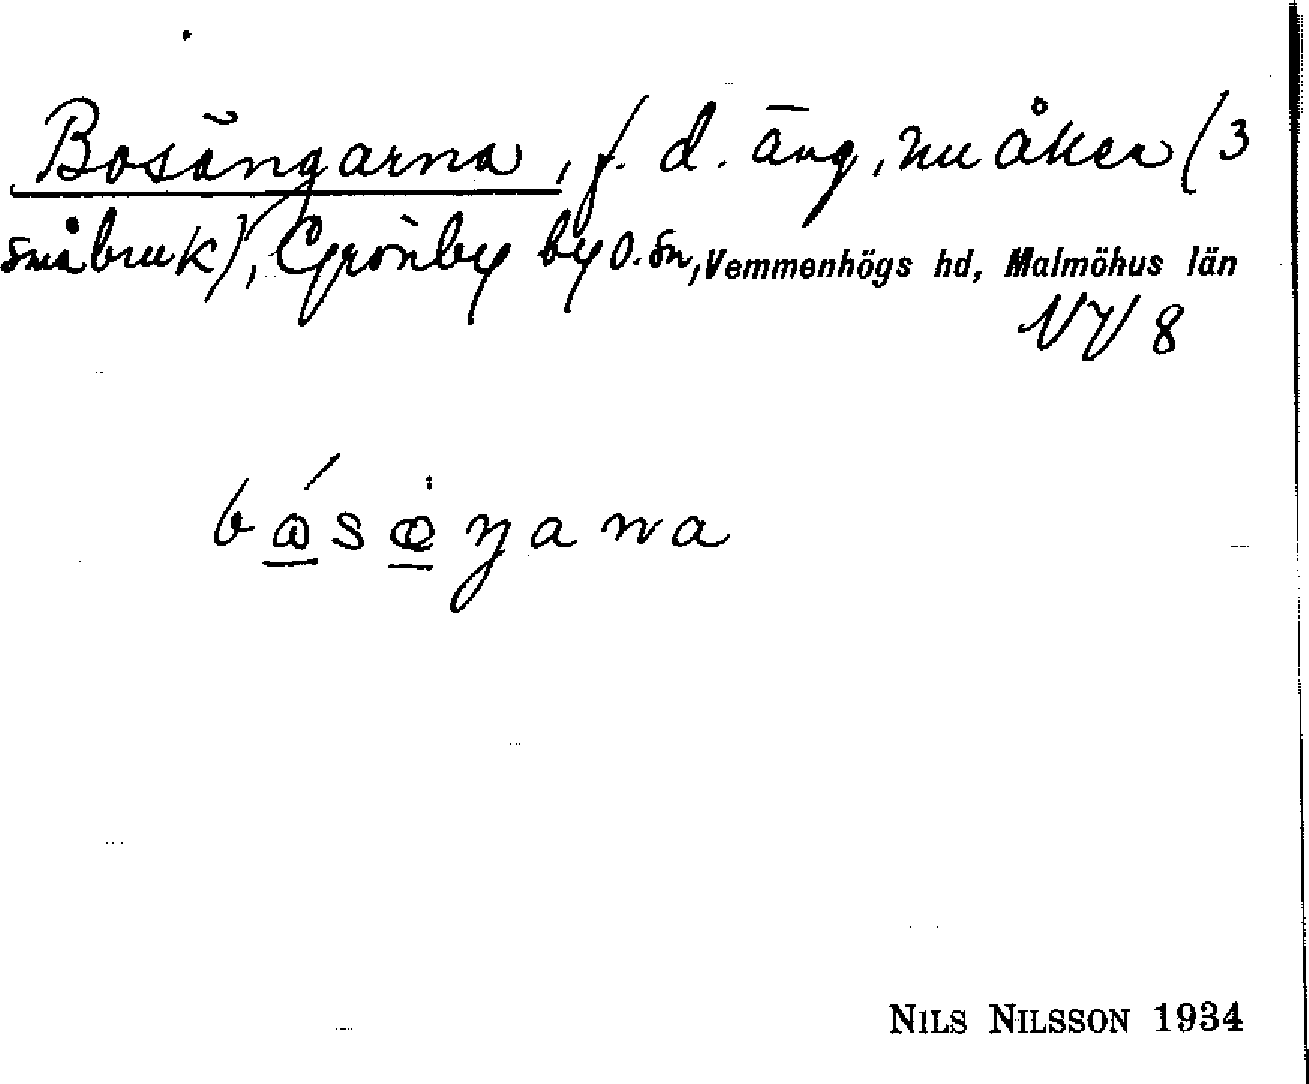 Bosängarna, f. d. äng, nu åker (3
småbruk), Grönby by o. sn, Vemmenhögs hd, Malmöhus län
NV 8
bósæŋana
NILS NILSSON 1934